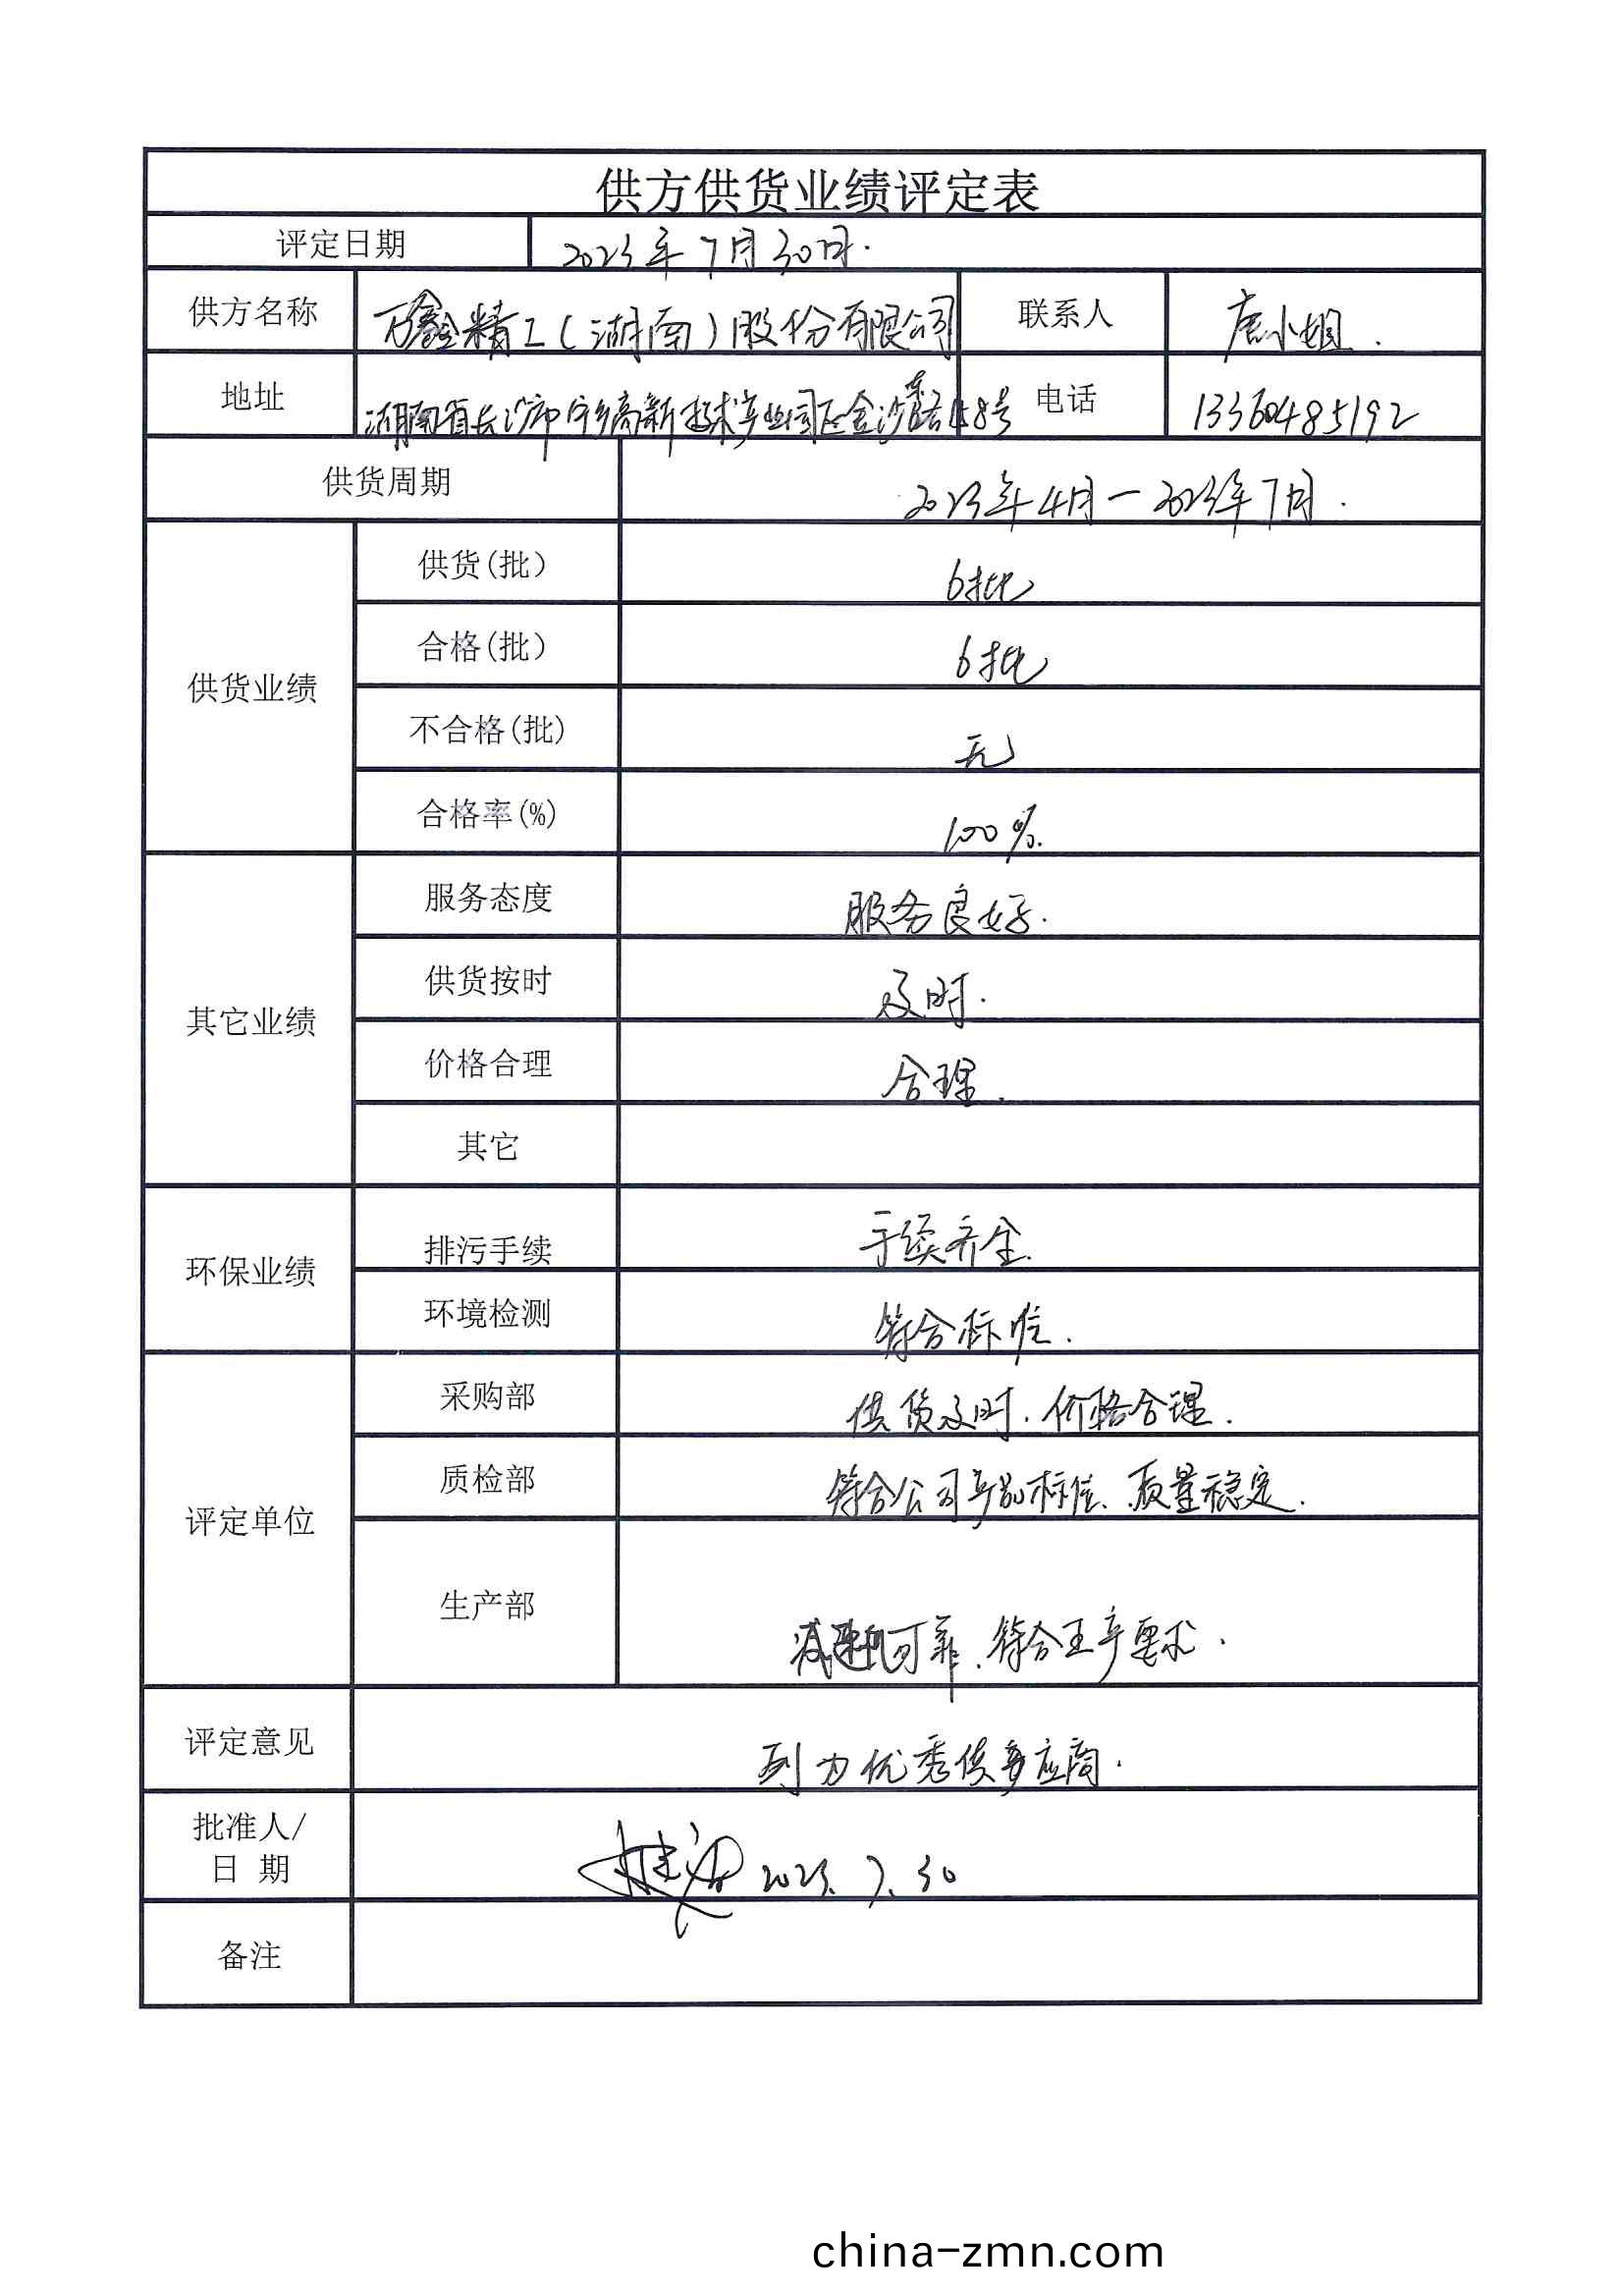 供方供货业绩评定表
评定日期 2023年7月30日.
供方名称 万鑫精工(湖南)股份有限公司 联系人 唐小姐.
地址 湖南省长沙市宁乡高新技术产业园区金沙东路158号 电话 13360485192
供货周期 2023年4月一2023年7月.
供货业绩
供货(批) 6批
合格(批) 6批
不合格(批) 无
合格率(%) 100%.
其它业绩
服务态度 服务良好.
供货按时 及时.
价格合理 合理.
其它
环保业绩
排污手续 手续齐全.
环境检测 符合标准.
评定单位
采购部 供货及时.价格合理.
质检部 符合公司产品标准、质量稳定.
生产部 减速机可靠.符合生产要求.
评定意见 列为优秀供应商.
批准人/
日 期 2023.7.30
备注
china-zmn.com